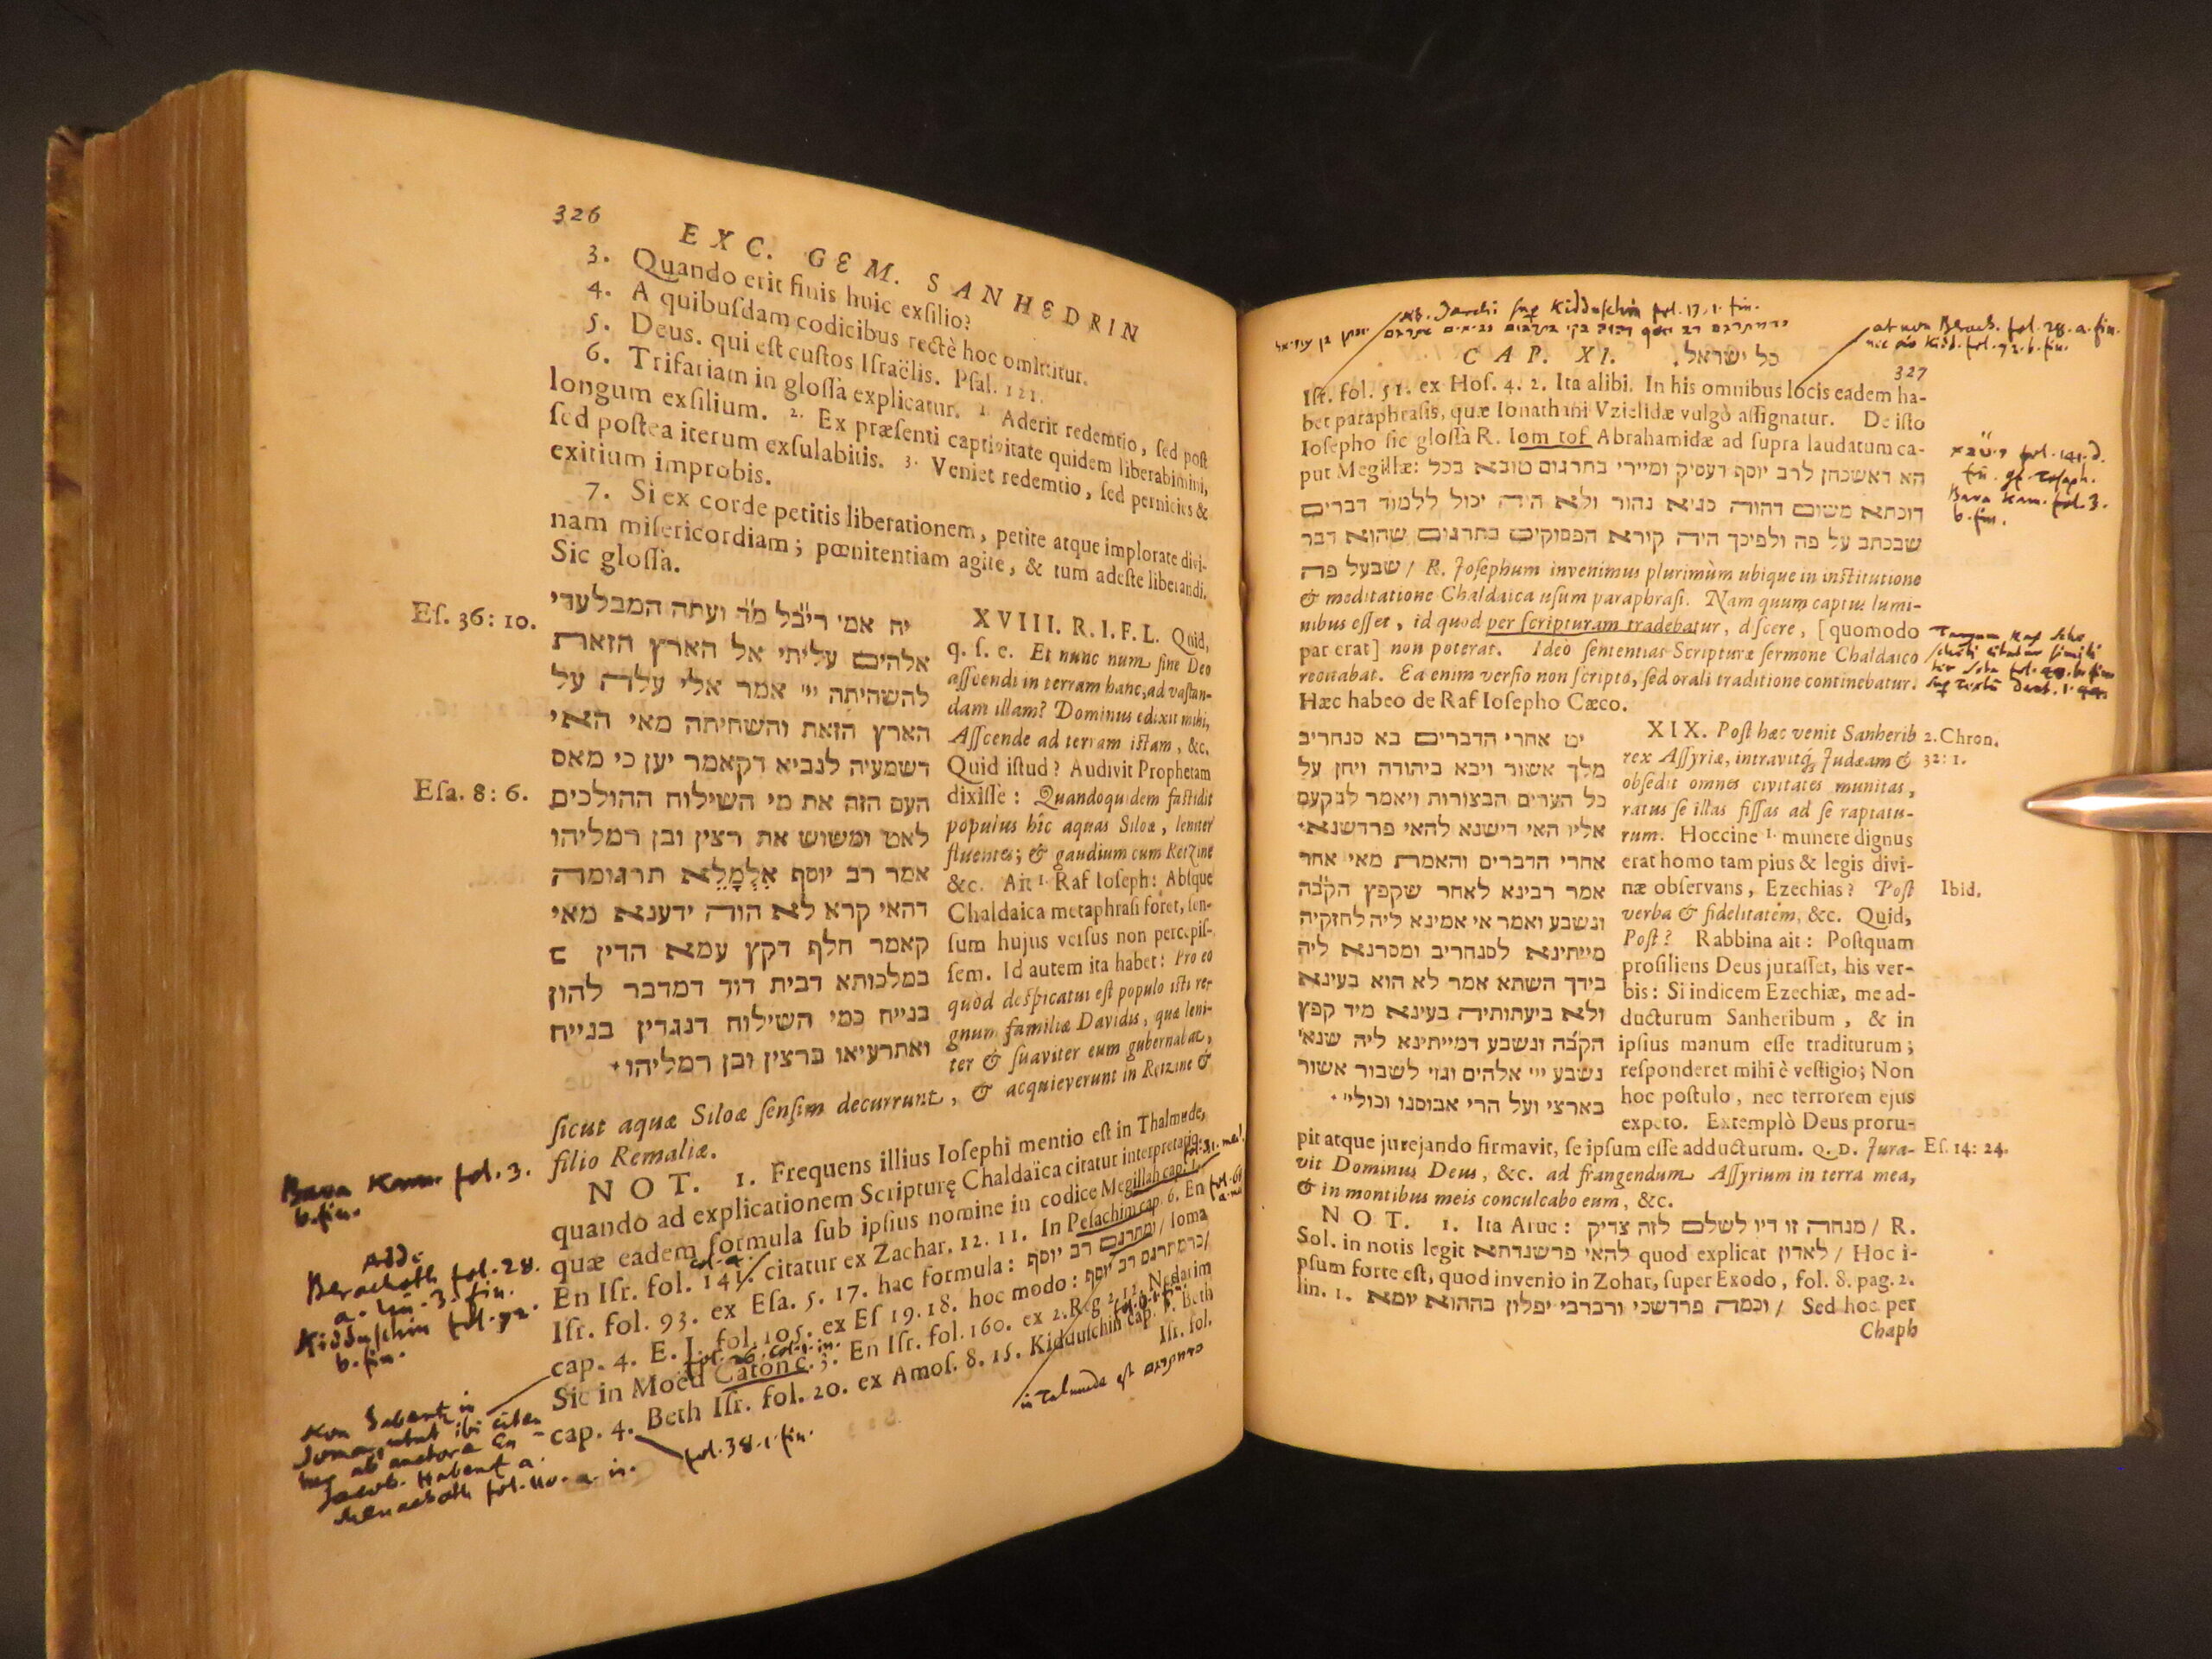 326
EXC. GEM. SANHEDRIN
3. Quando erit finis huic exſilio?
4. A quibuſdam codicibus rectè hoc omittitur.
5. Deus. qui eſt cuſtos Iſraëlis. Pſal. 121.
6. Trifariam in gloſſa explicatur. 1. Aderit redemtio, ſed poſt
longum exſilium. 2. Ex præſenti captivitate quidem liberabimini,
ſed poſtea iterum exſulabitis. 3. Veniet redemtio, ſed pernicies &
exitium improbis.
7. Si ex corde petitis liberationem, petite atque implorate divi-
nam miſericordiam; pœnitentiam agite, & tum adeſte liberandi.
Sic gloſſa.
Eſ. 36: 10.
Eſa. 8: 6.
יח אמ' ריב״ל מ״ד ועתה המבלעדי
אלהים עליתי אל הארץ הזאת
להשחיתה יי' אמר אלי עלה על
הארץ הזאת והשחיתה מאי האי
דשמעיה לנביא דקאמר יען כי מאס
העם הזה את מי השילוח ההולכים
לאט ומשוש את רצין ובן רמליהו
אמר רב יוסף אִלְמָלֵא תרגומה
דהאי קרא לא הוה ידענא מאי
קאמר חלף דקץ עמא הדין
במלכותא דבית דוד דמדבר להון
בנייח כמי השילוח דנגדין בנייח
ואתרעיאו ברצין ובן רמליהו
XVIII. R. I. F. L. Quid,
q. ſ. e. Et nunc num ſine Deo
aſſcendi in terram hanc, ad vaſtan-
dam illam? Dominus edixit mihi,
Aſſcende ad terram iſtam, &c.
Quid iſtud? Audivit Prophetam
dixiſſe: Quandoquidem faſtidit
populus hic aquas Siloæ, leniter
fluentes; & gaudium cum Retzine
&c. Ait 1. Raf Ioſeph: Abſque
Chaldaica metaphraſi foret, ſen-
ſum hujus verſus non percepiſ-
ſem. Id autem ita habet: Pro eo
quòd deſpicatui eſt populo iſti re-
gnum familiæ Davidis, qua leni-
ter & ſuaviter eum gubernabat,
ſicut aquæ Siloæ ſenſim decurrunt, & acquieverunt in Retzine &
filio Remaliæ.
NOT. 1. Frequens illius Ioſephi mentio eſt in Thalmude,
quando ad explicationem Scripturę Chaldaïca citatur interpretatio.
quæ eadem formula ſub ipſius nomine in codice Megillah cap. 1.
En Iſr. fol. 141. citatur ex Zachar. 12. 11. In Peſachim cap. 6. En
Iſr. fol. 93. ex Eſa. 5. 17. hac formula: ומתרגם רב יוסף / Ioma
cap. 4. E. I. fol. 105. ex Eſ 19. 18. hoc modo: כדמתרגם רב יוסף/
Sic in Moëd Caton c. 3. En Iſr. fol. 160. ex 2. Reg 2. 12. Nedarim
cap. 4. Beth Iſr. fol. 20. ex Amoſ. 8. 15. Kidduſchin cap. 1. Beth
Iſr. fol.
Bava Kam. fol. 3.
b. fin.
Adde
Berachoth fol. 28.
a. lin. 3. fin.
Kidduschin fol. 72.
b. fin.
Non habent in
Jacob. Habent a.
Menachoth fol. 110. a. in.
fol. 38. 1. fin.
in Talmude est כדמתרגם
Jarchi sup Kidduschin fol. 13. 1. fin.
at non Berach. fol. 28. a. fin.
nec Kidd. fol. 72. b. fin.
CAP. XI. כל ישראל.
327
Iſr. fol. 51. ex Hoſ. 4. 2. Ita alibi. In his omnibus locis eadem ha-
bet paraphraſis, quæ Ionathani Vzielidæ vulgò aſſignatur. De iſto
Ioſepho ſic gloſſa R. Iom tof Abrahamidæ ad ſupra laudatum ca-
put Megillæ: הא דאשכחן לרב יוסף דעסיק ומיירי בתרגום טובא בכל
דוכתא משום דהוה סגיא נהור ולא היה יכול ללמוד דברים
שבכתב על פה ולפיכך היה קורא הפסוקים בתרגום שהוא דבר
שבעל פה / R. Joſephum invenimus plurimùm ubique in inſtitutione
& meditatione Chaldaica uſum paraphraſi. Nam quum captus lumi-
nibus eſſet, id quod per ſcripturam tradebatur, diſcere, [quomodo
par erat] non poterat. Ideò ſententias Scripturæ ſermone Chaldaico
recitabat. Ea enim verſio non ſcripto, ſed orali traditione continebatur.
Hæc habeo de Raf Ioſepho Cæco.
fol. 141. d.
Bava Kam. fol. 3.
b. fin.
יט אחרי הדברים בא סנחריב
מלך אשור ויבא ביהודה ויחן על
כל הערים הבצורות ויאמר לבקעם
אליו האי דישנא להאי פרדשנא
אחרי הדברים והאמת מאי אחר
אמר רבינא לאחר שקפץ הקב״ה
ונשבע ואמר אי אמינא ליה לחזקיה
מייתינא לסנחריב ומסרנא ליה
בידך השתא אמר לא הוא בעינא
ולא ביעתותיה בעינא מיד קפץ
הקב״ה ונשבע דמייתינא ליה שנא'
נשבע יי' אלהים וגו' לשבור אשור
בארצי ועל הרי אבוסנו וכולי'
XIX. Poſt hæc venit Sanherib
rex Aſſyriæ, intravitq́; Judæam &
obſedit omnes civitates munitas,
ratus ſe illas fiſſas ad ſe raptatu-
rum. Hoccine 1. munere dignus
erat homo tam pius & legis divi-
næ obſervans, Ezechias? Poſt
verba & fidelitatem, &c. Quid,
Poſt? Rabbina ait: Poſtquam
proſiliens Deus juraſſet, his ver-
bis: Si indicem Ezechiæ, me ad-
ducturum Sanheribum, & in
ipſius manum eſſe traditurum;
reſponderet mihi è veſtigio; Non
hoc poſtulo, nec terrorem ejus
expeto. Extemplò Deus proru-
2. Chron.
32: 1.
Ibid.
pit atque jurejando firmavit, ſe ipſum eſſe adducturum. Q. D. Jura-
vit Dominus Deus, &c. ad frangendum Aſſyrium in terra mea,
& in montibus meis conculcabo eum, &c.
Eſ. 14: 24.
NOT. 1. Ita Aruc: מנחה זו דיו לשלם לזה צדיק / R.
Sol. in notis legit להאי פרשנדתא quod explicat לאדון / Hoc i-
pſum forte eſt, quod invenio in Zohar, ſuper Exodo, fol. 8. pag. 2.
lin. 1. וכמה פרדשכי ורברבי יפלון בההוא יומא / Sed hoc per
Chaph